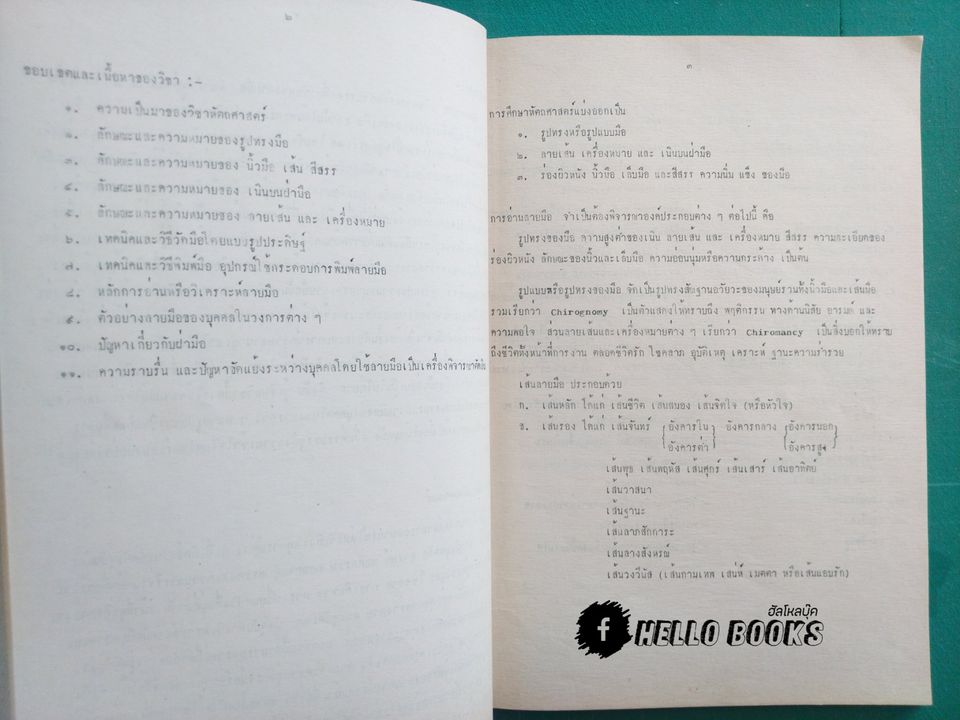 ๒
ขอบเขตและเนื้อหาของวิชา :-
๑. ความเป็นมาของวิชาหัตถศาสตร์
๒. ลักษณะและความหมายของรูปทรงมือ
๓. ลักษณะและความหมายของ นิ้วมือ เล็บ สีสรร
๔. ลักษณะและความหมายของ เนินบนฝ่ามือ
๕. ลักษณะและความหมายของ ลายเส้น และ เครื่องหมาย
๖. เทคนิคและวิธีวัดมือโดยแบบรูปประดิษฐ์
๗. เทคนิคและวิธีพิมพ์มือ อุปกรณ์ใช้ประกอบการพิมพ์ลายมือ
๘. หลักการอ่านหรือวิเคราะห์ลายมือ
๙. ตัวอย่างลายมือของบุคคลในวงการต่าง ๆ
๑๐. ปัญหาเกี่ยวกับฝ่ามือ
๑๑. ความราบรื่น และปัญหาขัดแย้งระหว่างบุคคลโดยใช้ลายมือเป็นเครื่องพิจารณาตัดสิน
๓
การศึกษาหัตถศาสตร์แบ่งออกเป็น
๑. รูปทรงหรือรูปแบบมือ
๒. ลายเส้น เครื่องหมาย และ เนินบนฝ่ามือ
๓. ร่องผิวหนัง นิ้วมือ เล็บมือ และสีสรร ความนิ่ม แข็ง ของมือ
การอ่านลายมือ จำเป็นต้องพิจารณาองค์ประกอบต่าง ๆ ต่อไปนี้ คือ
รูปทรงของมือ ความสูงต่ำของเนิน ลายเส้น และ เครื่องหมาย สีสรร ความละเอียดของ
ร่องผิวหนัง ลักษณะของนิ้วและเล็บมือ ความอ่อนนุ่มหรือความกระด้าง เป็นต้น
รูปแบบหรือรูปทรงของมือ จัดเป็นรูปทรงสัณฐานอวัยวะของมนุษย์รวมทั้งนิ้วมือและเล็บมือ
รวมเรียกว่า Chirognomy เป็นตัวแสดงให้ทราบถึง พฤติกรรม ทางด้านนิสัย อารมณ์ และ
ความพอใจ ส่วนลายเส้นและเครื่องหมายต่าง ๆ เรียกว่า Chiromancy เป็นสิ่งบอกให้ทราบ
ถึงชีวิตทั้งหน้าที่การงาน ตลอดชีวิตรัก โชคลาภ อุบัติเหตุ เคราะห์ ฐานะความร่ำรวย
เส้นลายมือ ประกอบด้วย
ก. เส้นหลัก ได้แก่ เส้นชีวิต เส้นสมอง เส้นจิตใจ (หรือหัวใจ)
ข. เส้นรอง ได้แก่ เส้นจันทร์ {อังคารใน} อังคารกลาง {อังคารนอก}
{อังคารต่ำ} {อังคารสูง}
เส้นพุธ เส้นพฤหัส เส้นศุกร์ เส้นเสาร์ เส้นอาทิตย์
เส้นวาสนา
เส้นฐานะ
เส้นลาภสักการะ
เส้นลางสังหรณ์
เส้นวงวีนัส (เส้นกามเทพ เสน่ห์ เมตตา หรือเส้นแอบรัก)
ฮัลโหลบุ๊ค
f HELLO BOOKS